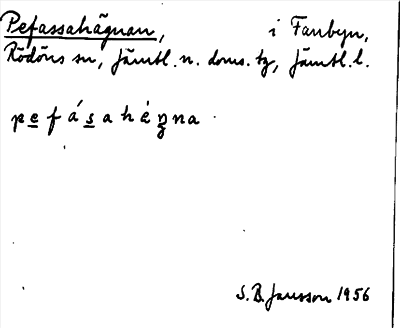 Pefassahägnan, i Fanbyn,
Rödöns sn, Jämtl. n. doms. tg, Jämtl. l.
pefásahäŋna
S. B. Jansson 1956